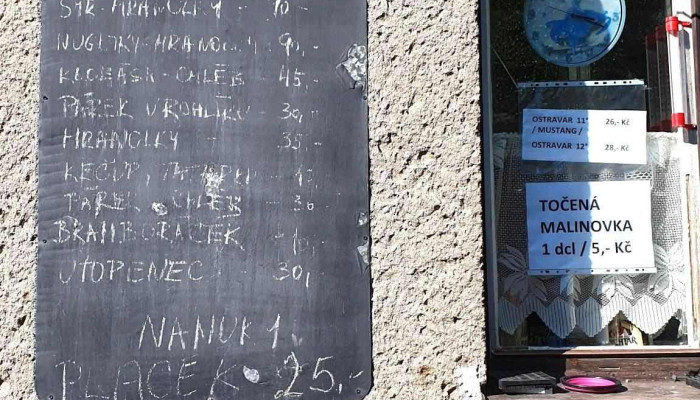 SÝR HRANOLKY - 70,-
NUGETKY-HRANOLKY 90,-
KLOBÁSA-CHLÉB - 45,-
PÁREK V ROHLÍKU - 30,-
HRANOLKY - 35,-
KEČUP,
PÁREK CHLÉB - 30
BRAMBORÁČEK
UTOPENEC - 30,-
NANUK 1.
PLACEK 25,-
OSTRAVAR 11° 26,- Kč
/ MUSTANG /
OSTRAVAR 12° 28,- Kč
TOČENÁ
MALINOVKA
1 dcl / 5,- Kč